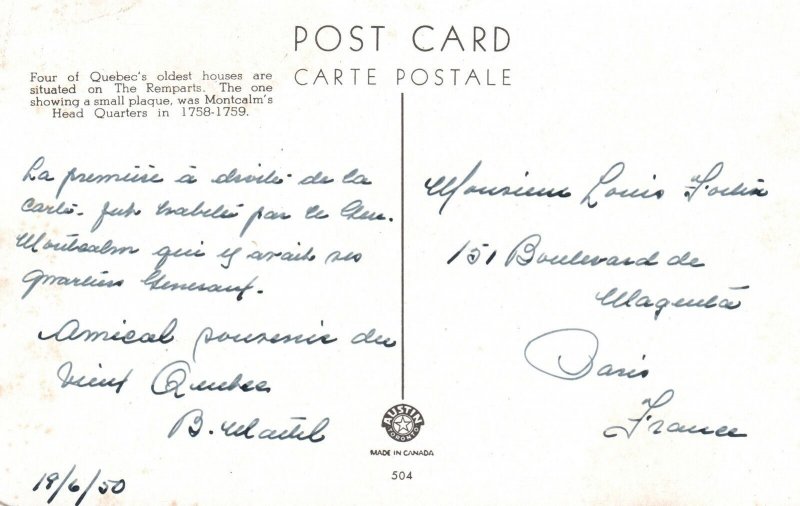 POST CARD
CARTE POSTALE
Four of Quebec's oldest houses are
situated on The Remparts. The one
showing a small plaque, was Montcalm's
Head Quarters in 1758-1759.
La première à droite de la
carte. fut habitée par le Gen.
Montcalm qui y avait ses
quartiers Generaux.
Amical souvenir du
Vieux Quebec
B.
19/6/50
Monsieur Louis
151 Boulevard de
Magenta
Paris
France
AUSTIN
TORONTO
MADE IN CANADA
504